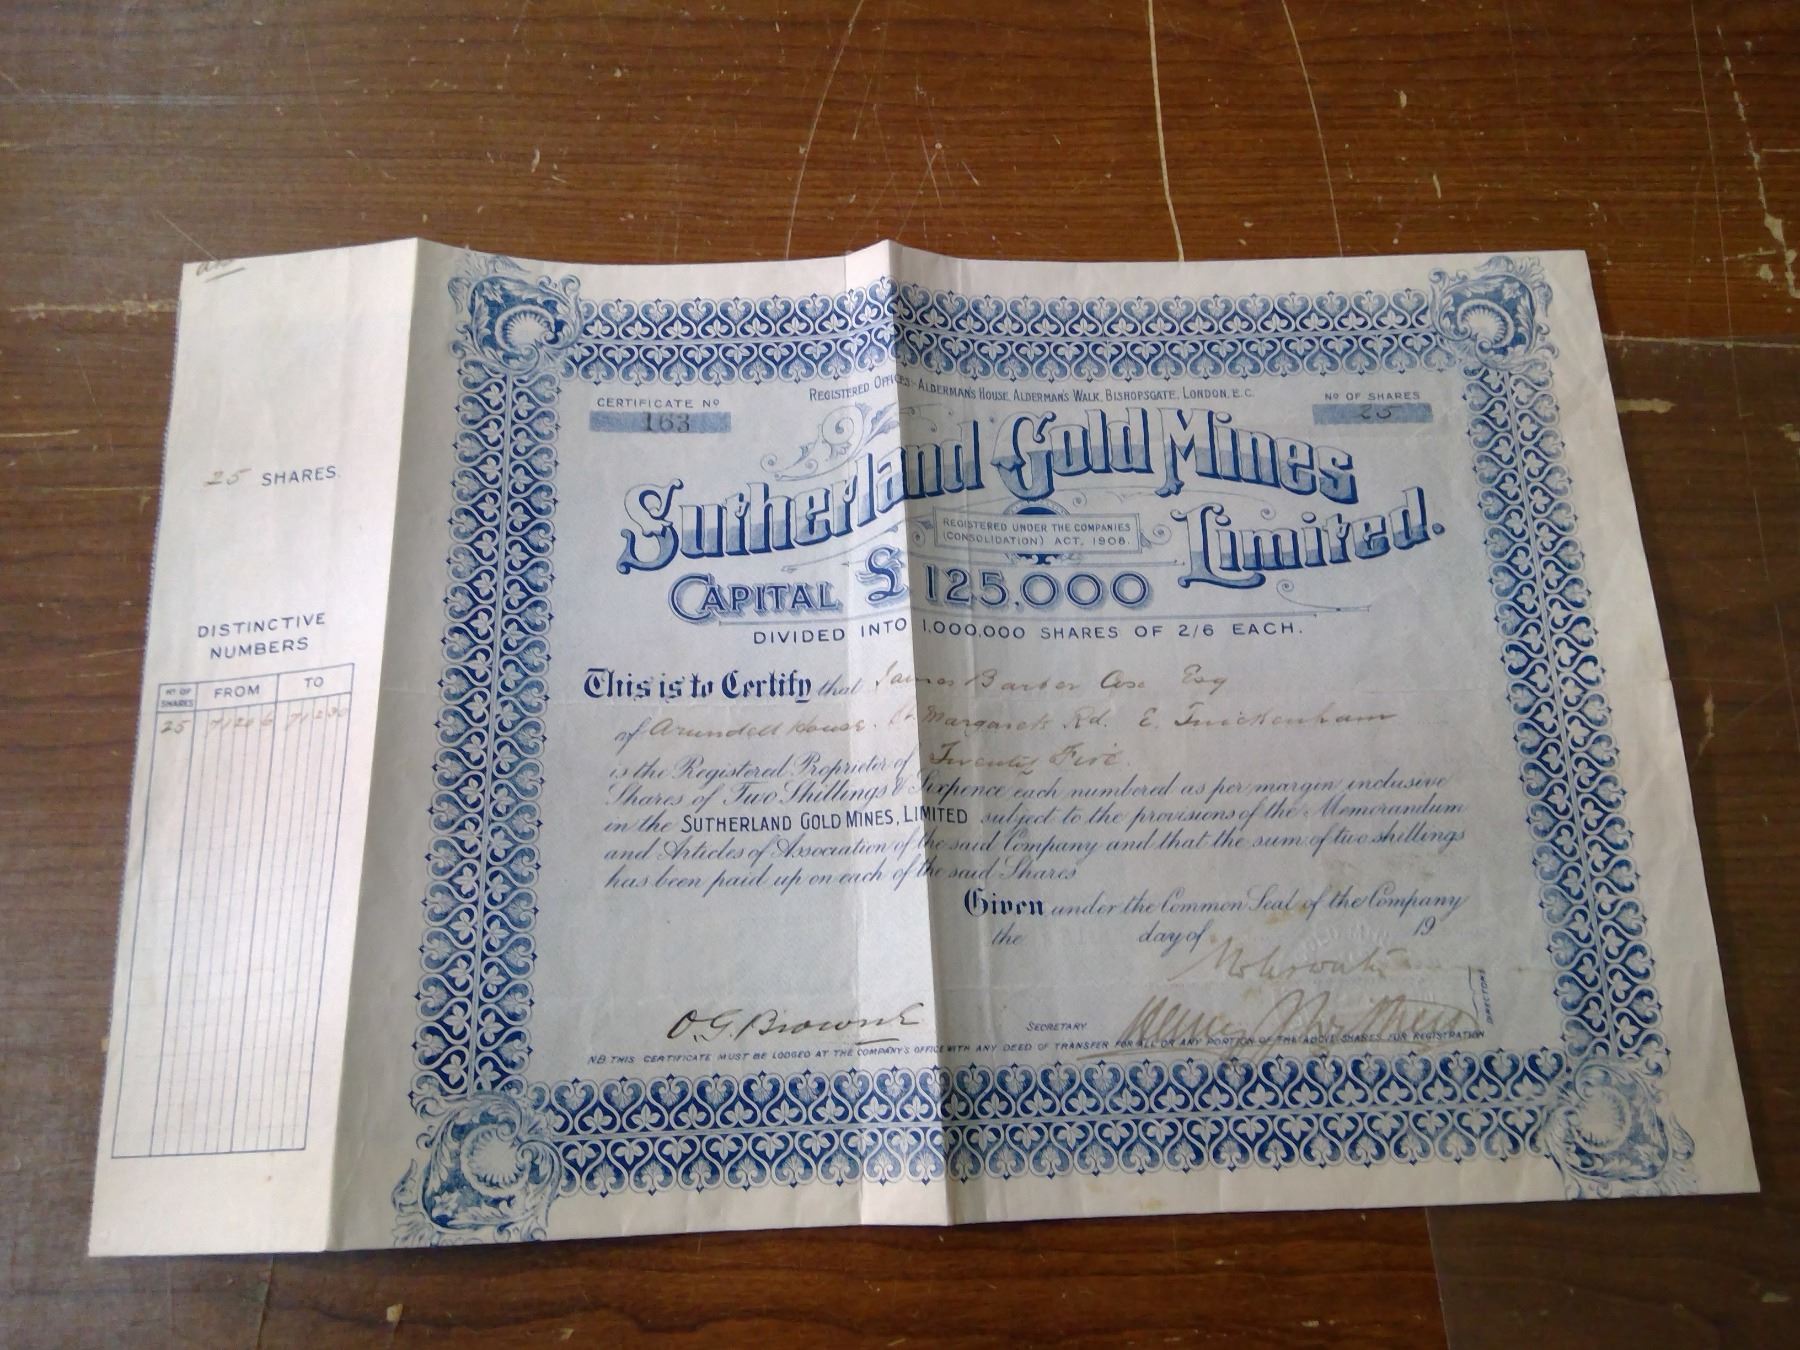 25 SHARES.
DISTINCTIVE
NUMBERS
Nº OF SHARES FROM TO
25 71206 71230
CERTIFICATE Nº
163
REGISTERED OFFICES:- ALDERMAN'S HOUSE, ALDERMAN'S WALK, BISHOPSGATE, LONDON, E.C.
Nº OF SHARES
25
Sutherland Gold Mines
Limited.
REGISTERED UNDER THE COMPANIES
(CONSOLIDATION) ACT, 1908.
CAPITAL £125,000
DIVIDED INTO 1,000,000 SHARES OF 2/6 EACH.
This is to Certify that James Barber Esq
of Arundell House, St Margarets Rd. E. Twickenham
is the Registered Proprietor of Twenty Five
Shares of Two Shillings & Sixpence each numbered as per margin inclusive
in the SUTHERLAND GOLD MINES, LIMITED subject to the provisions of the Memorandum
and Articles of Association of the said Company and that the sum of two shillings
has been paid up on each of the said Shares
Given under the Common Seal of the Company
the day of 19
O.G. Browne
SECRETARY
DIRECTORS
NB THIS CERTIFICATE MUST BE LODGED AT THE COMPANY'S OFFICE WITH ANY DEED OF TRANSFER FOR ALL OR ANY PORTION OF THE ABOVE SHARES FOR REGISTRATION